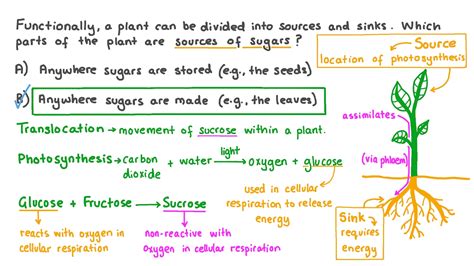 Functionally, a plant can be divided into sources and sinks. Which
parts of the plant are sources of sugars?
A) Anywhere sugars are stored (e.g., the seeds)
B) Anywhere sugars are made (e.g., the leaves)
Translocation → movement of sucrose within a plant.
Photosynthesis → carbon dioxide + water light → oxygen + glucose
used in cellular
respiration to release
energy
Glucose + Fructose → Sucrose
reacts with oxygen in
cellular respiration
non-reactive with
oxygen in cellular respiration
Source
location of photosynthesis
assimilates
(via phloem)
Sink
requires
energy